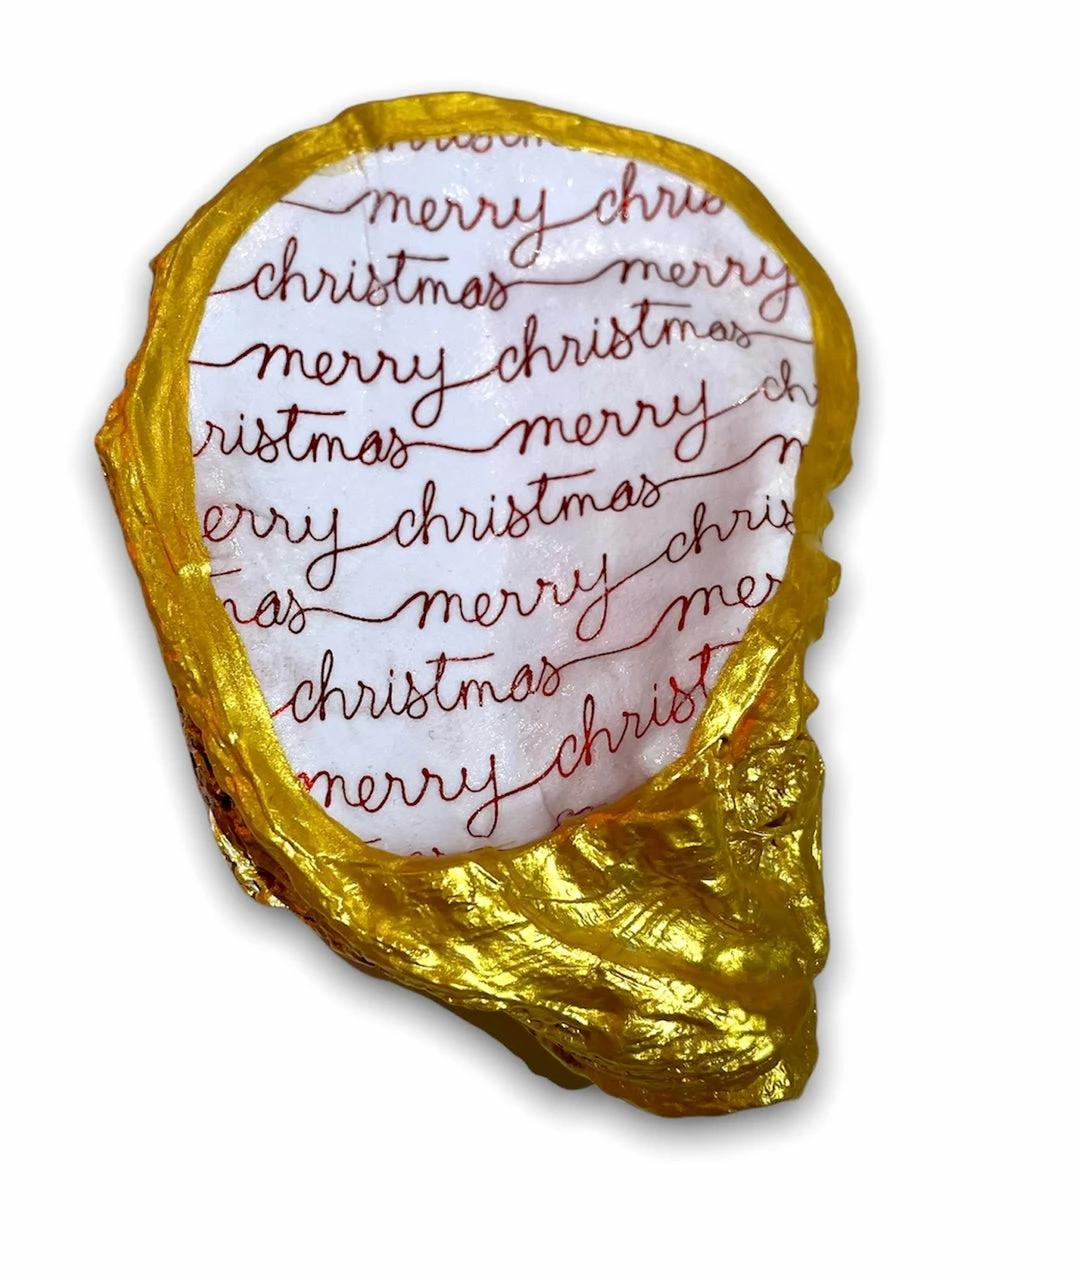 merry chris
christmas merry
merry christmas
ristmas merry ch
erry christmas m
mas merry chris
christmas mer
merry christ